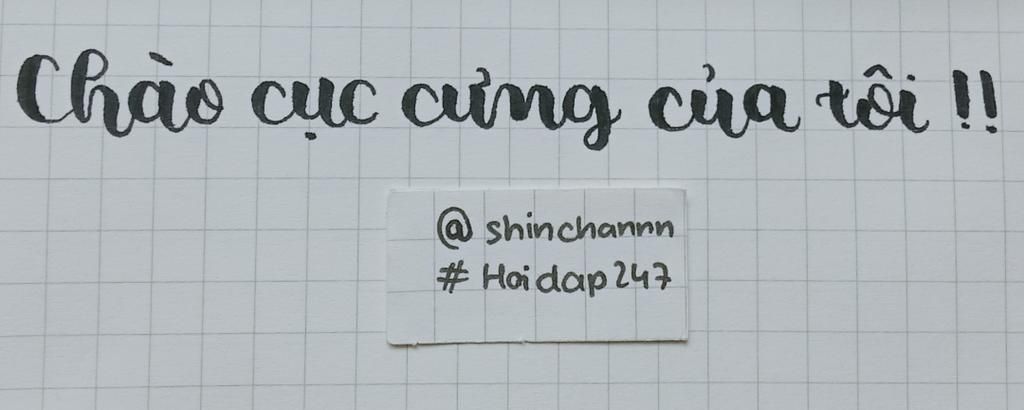 Chào cục cưng của tôi !!
@ shinchannn
# Hoidap247